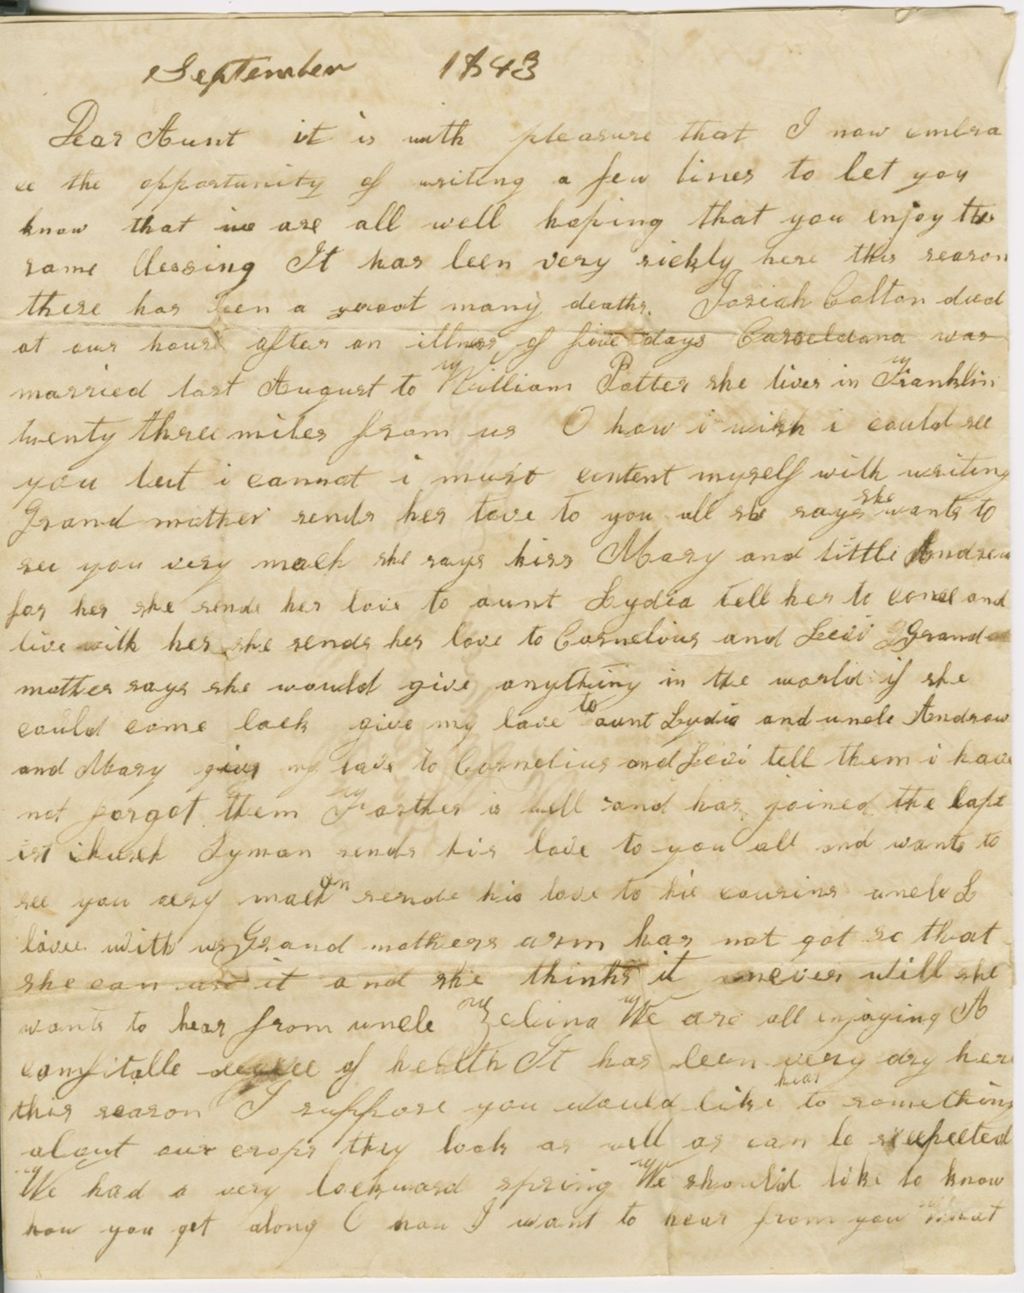 September 1843
Dear Aunt it is with pleasure that I now embra
ce the opportunity of writing a few lines to let you
know that we are all well hoping that you enjoy the
same blessing It has been very sickly here this season
there has been a many deaths. Josiah Colton died
at our house after an illness of five days was
married last August to William Potter she lives in Franklin
twenty three miles from us O how i wish i could see
you but i cannot i must content myself with writing
Grand mother sends her love to you all she says she wants to
see you very much she says kiss Mary and little Andrew
for her she sends her love to aunt Lydia tell her to come and
live with her she sends her love to Cornelius and Levi Grand
mother says she would give anything in the world if she
could come back give my love to aunt Lydia and uncle Andrew
and Mary give my love to Cornelius and Levi tell them i have
not forgot them Farther is well and has joined the bapt
ist church Lyman sends his love to you all and wants to
see you very much sends his love to his cousins uncle L
lives with us Grand mothers arm has not got so that
she can use it and she thinks it never will she
wants to hear from uncle We are all enjoying A
comfitable degree of health It has been very dry here
this season I suppose you would like to hear something
about our crops they look as well as can be
We had a very backward spring We should like to know
how you get along O how I want to hear from you